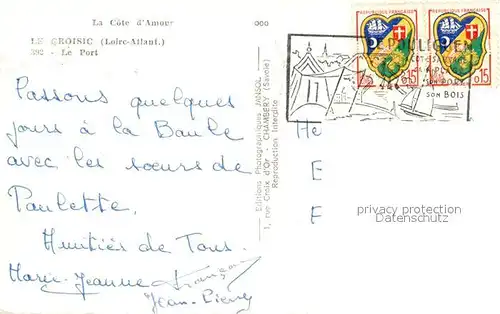 La Côte d'Amour
LE CROISIC (Loire-Atlant.)
392 - Le Port
Passons quelques
jours à la Baule
avec les sœurs de
Paulette.
Amitiés de Tous.
Marie-Jeanne François
Jean-Pierre
Editions Photographiques MOISOL
1, rue Croix d'Or - CHAMBERY (Savoie)
Reproduction Interdite
REPUBLIQUE FRANÇAISE
0,15
REPUBLIQUE FRANÇAISE
0,15
LE POULIGUEN
SA PLAGE
SON PORT
SON BOIS
He
E
F
privacy protection
Datenschutz